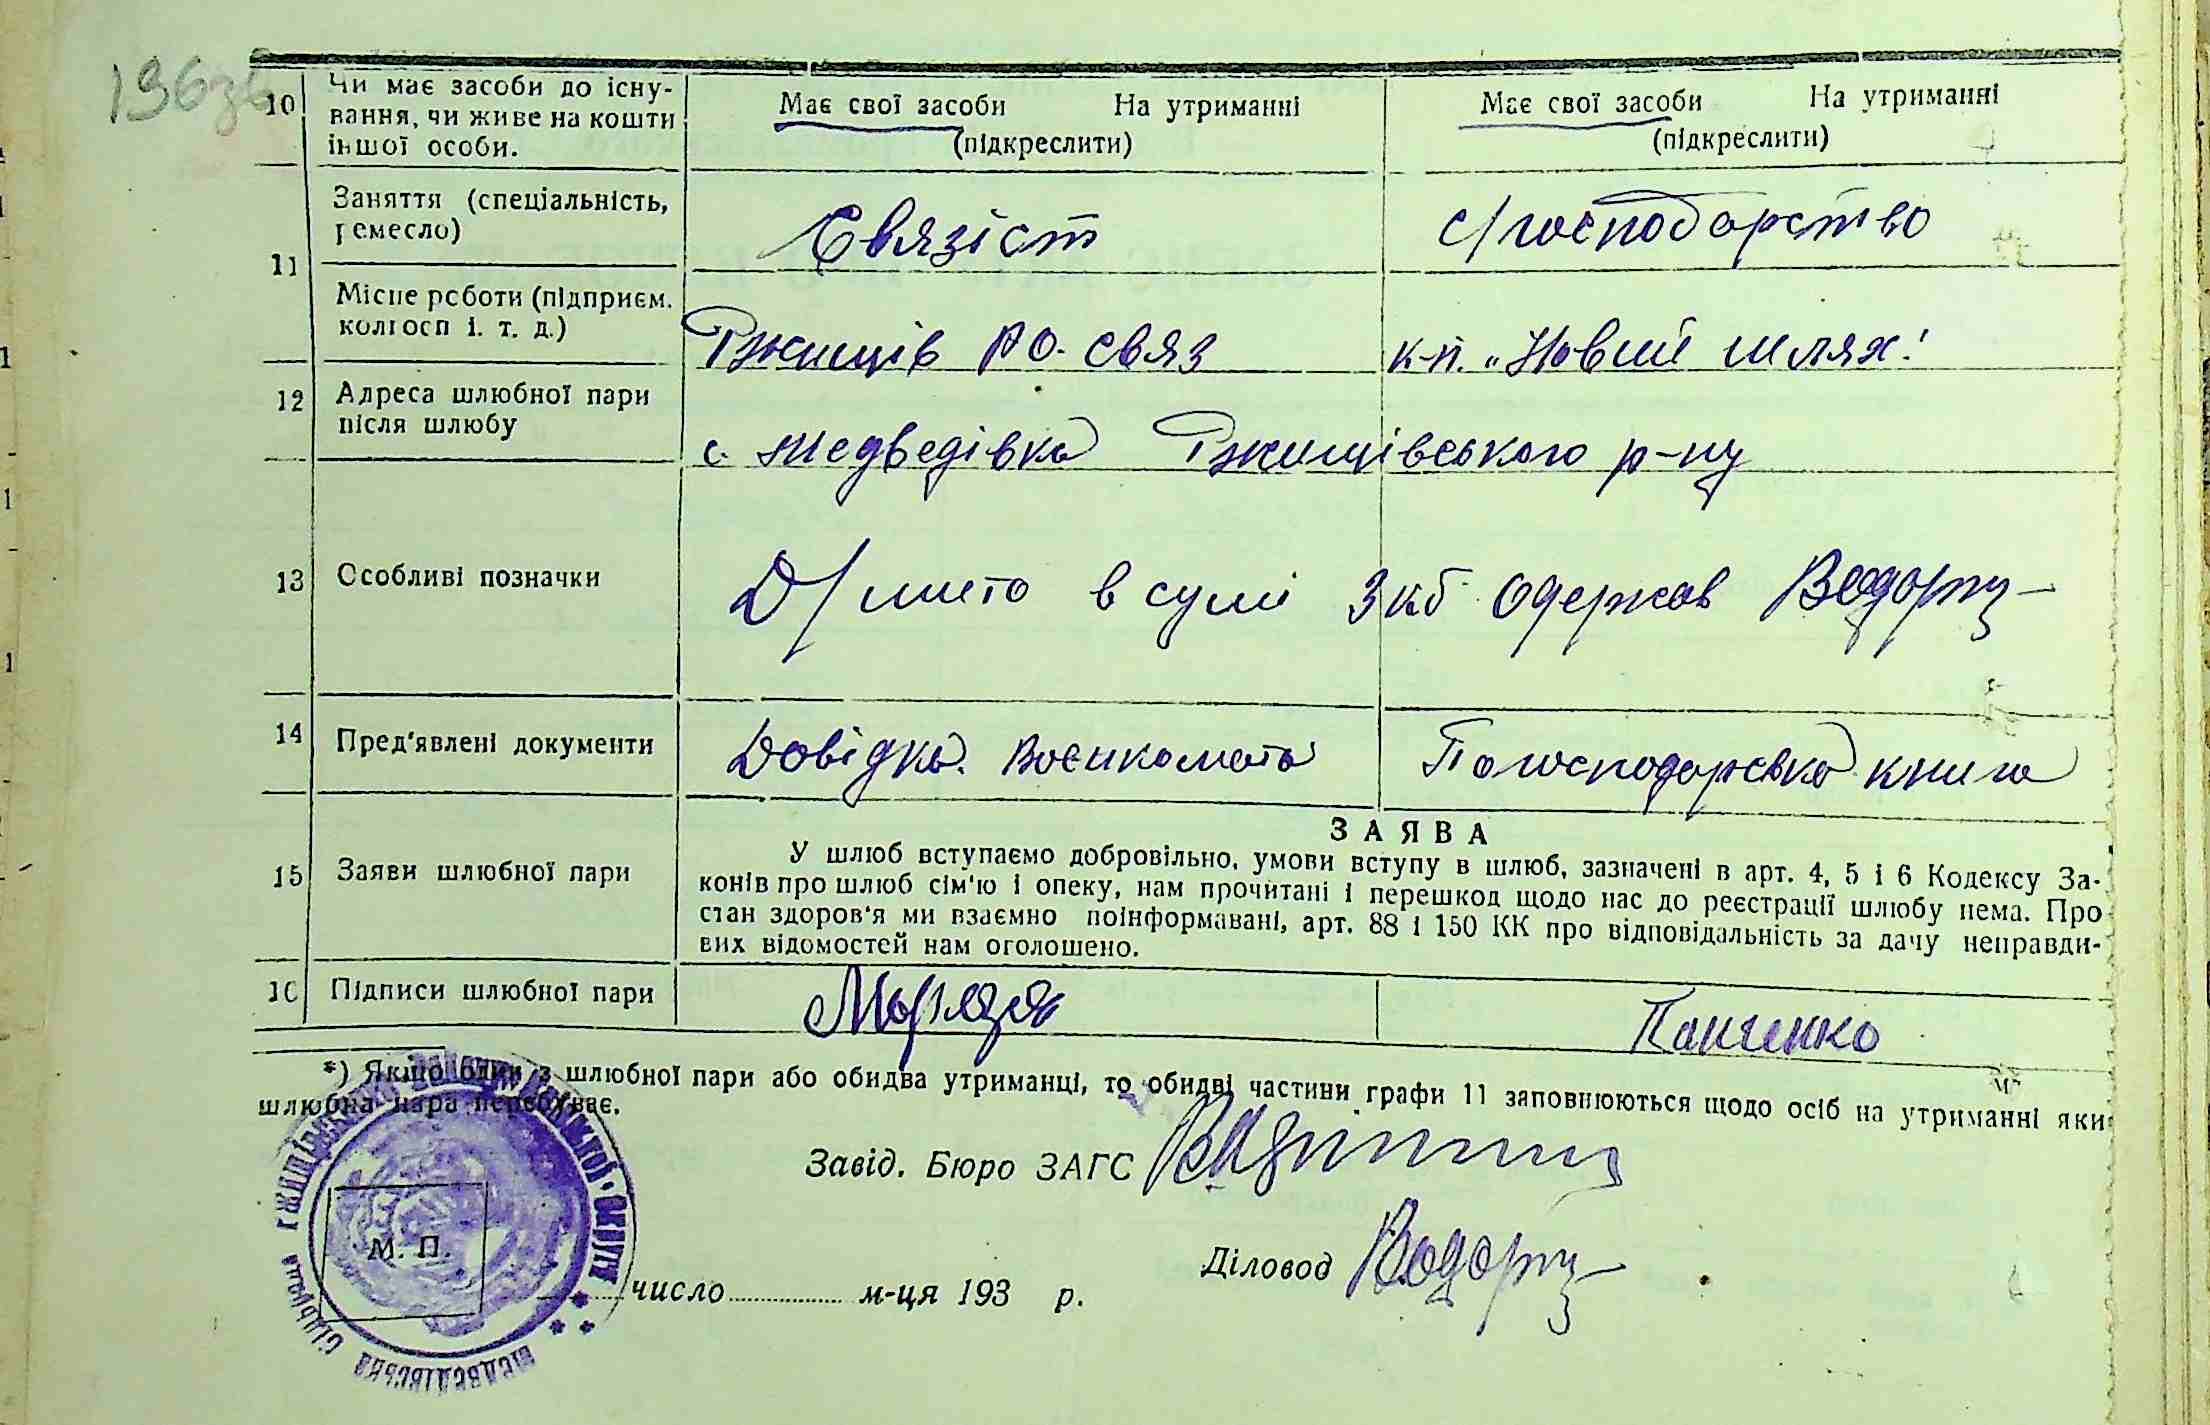 196зв
10 Чи має засоби до існу-
вання, чи живе на кошти
іншої особи.
Має свої засоби На утриманні
(підкреслити)
Має свої засоби На утриманні
(підкреслити)
11 Заняття (спеціальність,
ремесло)
Связіст
с/господарство
Місце роботи (підприєм.
колгосп і. т. д.)
Ржищів РО. связ
к-п. „Новий шлях"
12 Адреса шлюбної пари
після шлюбу
с. Медведівка Ржищівського р-ну
13 Особливі позначки
Д/мито в сумі 3 кб одержав
14 Пред'явлені документи
Довідка. Воєнкомата
Погосподарська книга
15 Заяви шлюбної пари
ЗАЯВА
У шлюб вступаємо добровільно, умови вступу в шлюб, зазначені в арт. 4, 5 і 6 Кодексу За-
конів про шлюб сім'ю і опеку, нам прочитані і перешкод щодо нас до реєстрації шлюбу нема. Про
стан здоров'я ми взаємно поінформавані, арт. 88 і 150 КК про відповідальність за дачу неправди-
вих відомостей нам оголошено.
16 Підписи шлюбної пари
Панченко
*) Якщо один з шлюбної пари або обидва утриманці, то обидві частини графи 11 заповнюються щодо осіб на утриманні яки
шлюбна пара перебуває.
Завід. Бюро ЗАГС
Діловод
М. П.
число м-ця 193 р.